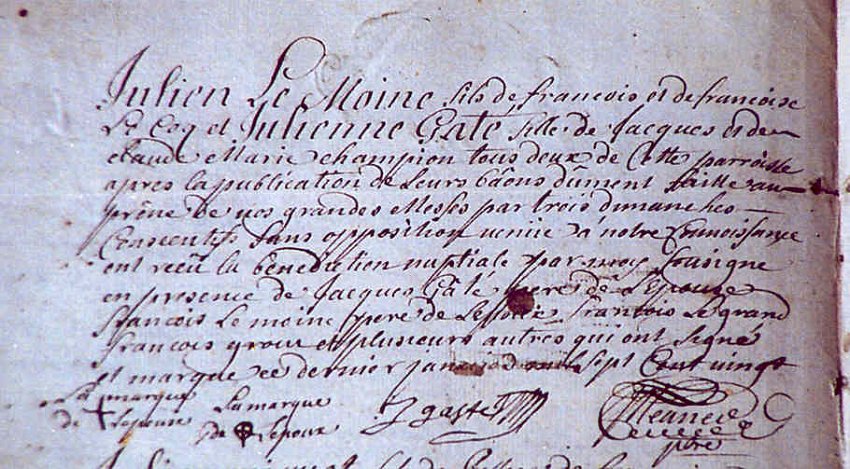 Julien Le Moine fils de francois et de francoise
Le Coq et Julienne Gaté fille de Jacques et de
claude Marie champion tous deux de Cette parroisse
apres la publication de Leurs bãons dûment faitte au
prône de nos grandes Messes par trois dimanches
Consecutifs sans opposition venüe a notre Connoissance
ont reçû la bénédiction nuptiale par moy sousigné
en presence de Jacques Gâté pere de L'Epouze
francois Le moine pere de Lepoux francois Le grand
francois et plusieurs autres qui ont signé
et marque ce dernier janvier mil Sept Cent vingt
La marque
de Lepouse
La marque
de Lepoux
J gasté
ptre